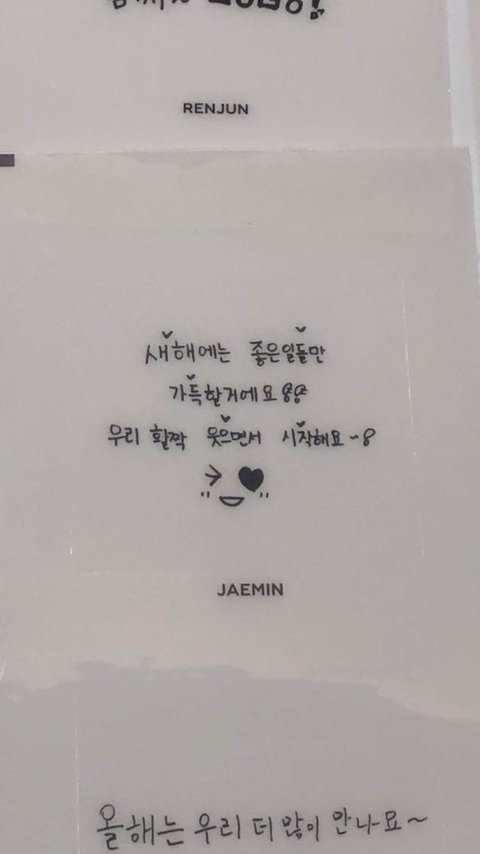 RENJUN
새해에는 좋은일들만
가득할거에요
우리 활짝 웃으면서 시작해요~
JAEMIN
올해는 우리 더 많이 만나요~